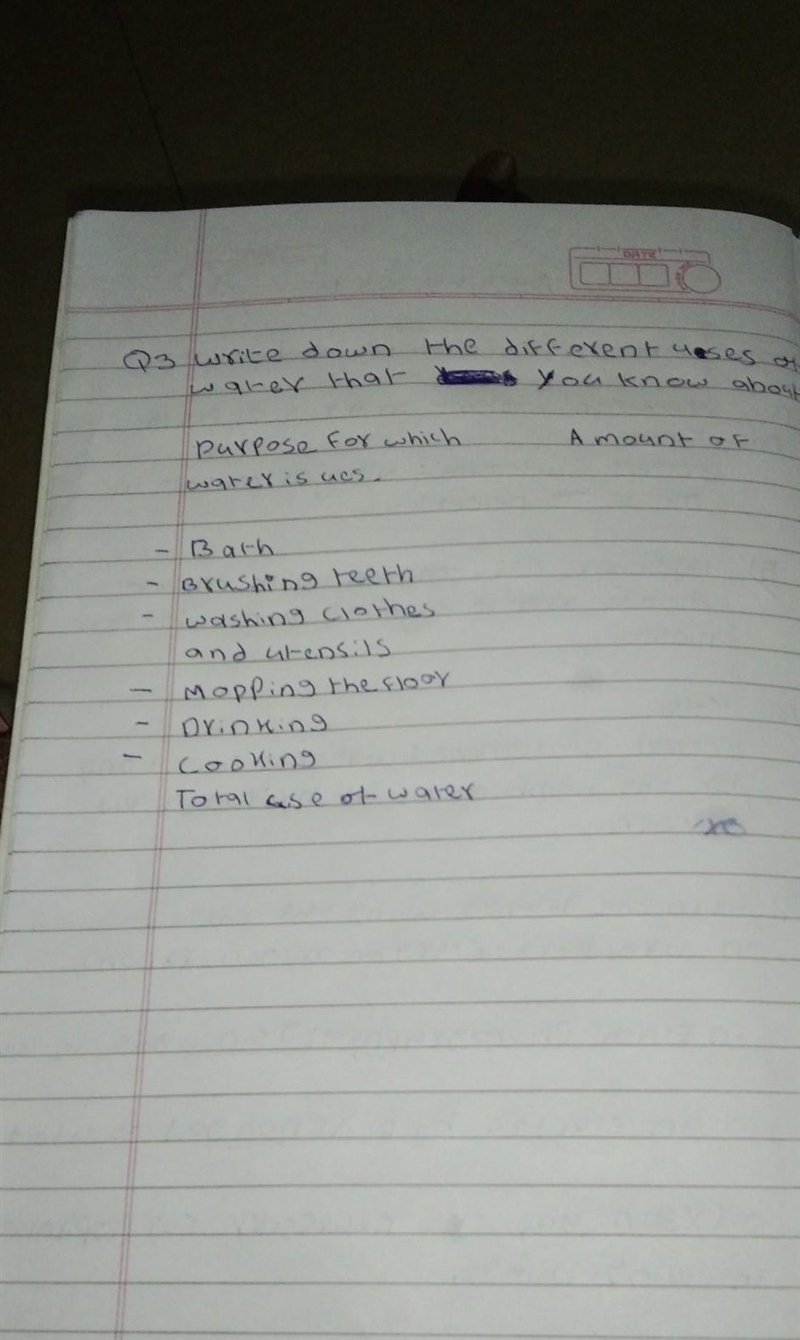 DATE
Q3 write down the different uses of
water that you know about
purpose for which Amount of
water is ues.
- Bath
- Brushing teeth
- washing clothes
and utensils
- Mopping the floor
- Drinking
- Cooking
Total use of water